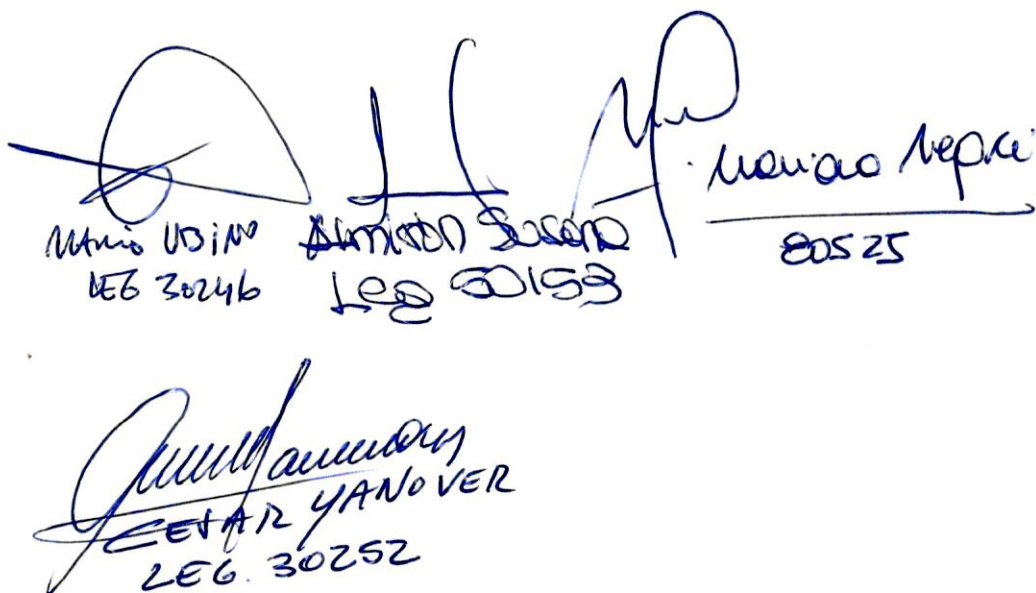 MARIO UBINO
LEG 30246
Almiron Susana
Leg 50153
Mariana Negri
80525
CESAR YANOVER
LEG. 30252